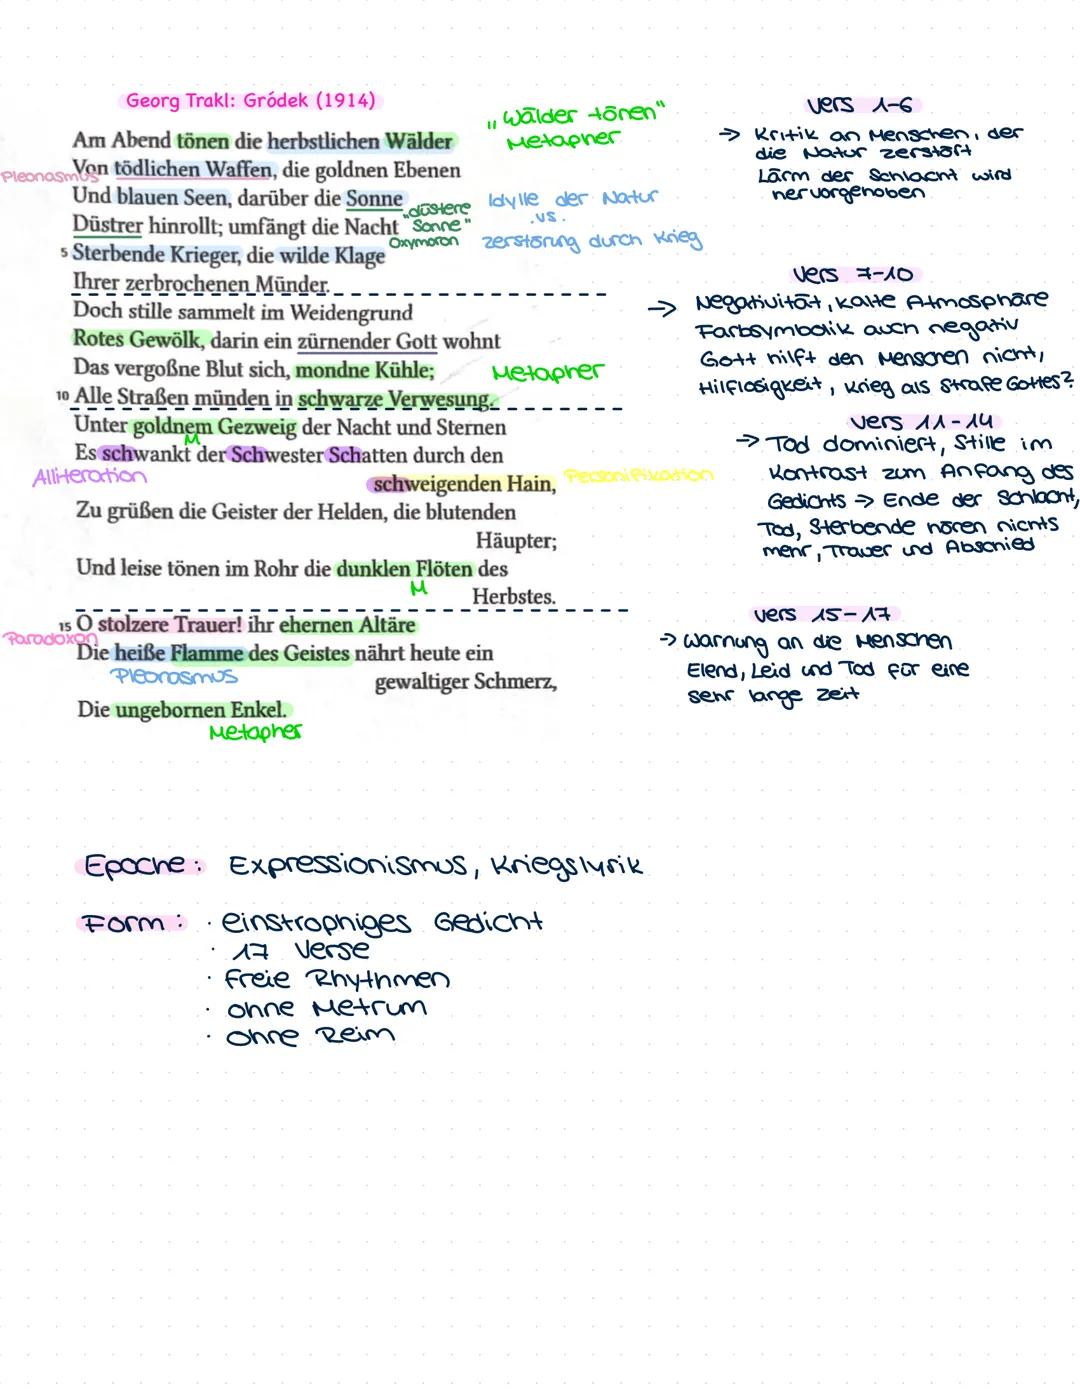 Georg Trakl: Gródek (1914)
Am Abend tönen die herbstlichen Wälder
Von tödlichen Waffen, die goldnen Ebenen
Und blauen Seen, darüber die Sonne
Düstrer hinrollt; umfängt die Nacht
5 Sterbende Krieger, die wilde Klage
Ihrer zerbrochenen Münder.
Doch stille sammelt im Weidengrund
Rotes Gewölk, darin ein zürnender Gott wohnt
Das vergoßne Blut sich, mondne Kühle;
10 Alle Straßen münden in schwarze Verwesung.
Unter goldnem Gezweig der Nacht und Sternen
Es schwankt der Schwester Schatten durch den
schweigenden Hain,
Zu grüßen die Geister der Helden, die blutenden
Häupter;
Und leise tönen im Rohr die dunklen Flöten des
Herbstes.
15 O stolzere Trauer! ihr ehernen Altäre
Die heiße Flamme des Geistes nährt heute ein
gewaltiger Schmerz,
Die ungebornen Enkel.
Pleonasmus
"düstere
Sonne"
Oxymoron
„Wälder tönen"
Metapher
Idylle der Natur
.vs.
zerstörung durch Krieg
Metapher
M
Alliteration
Personifikation
M
Paradoxon
Pleonasmus
Metapher
Vers 1-6
→ Kritik an Menschen, der
die Natur zerstört
Lärm der Schlacht wird
hervorgehoben
Vers 7-10
→ Negativität, kalte Atmosphäre
Farbsymbolik auch negativ
Gott hilft den Menschen nicht,
Hilflosigkeit, Krieg als Strafe Gottes?
Vers 11-14
→ Tod dominiert, Stille im
Kontrast zum Anfang des
Gedichts → Ende der Schlacht,
Tod, Sterbende hören nichts
mehr, Trauer und Abschied
Vers 15-17
→ Warnung an die Menschen
Elend, Leid und Tod für eine
sehr lange Zeit
Epoche: Expressionismus, Kriegslyrik
Form: · einstrophiges Gedicht
· 17 Verse
· freie Rhythmen
· ohne Metrum
· ohne Reim